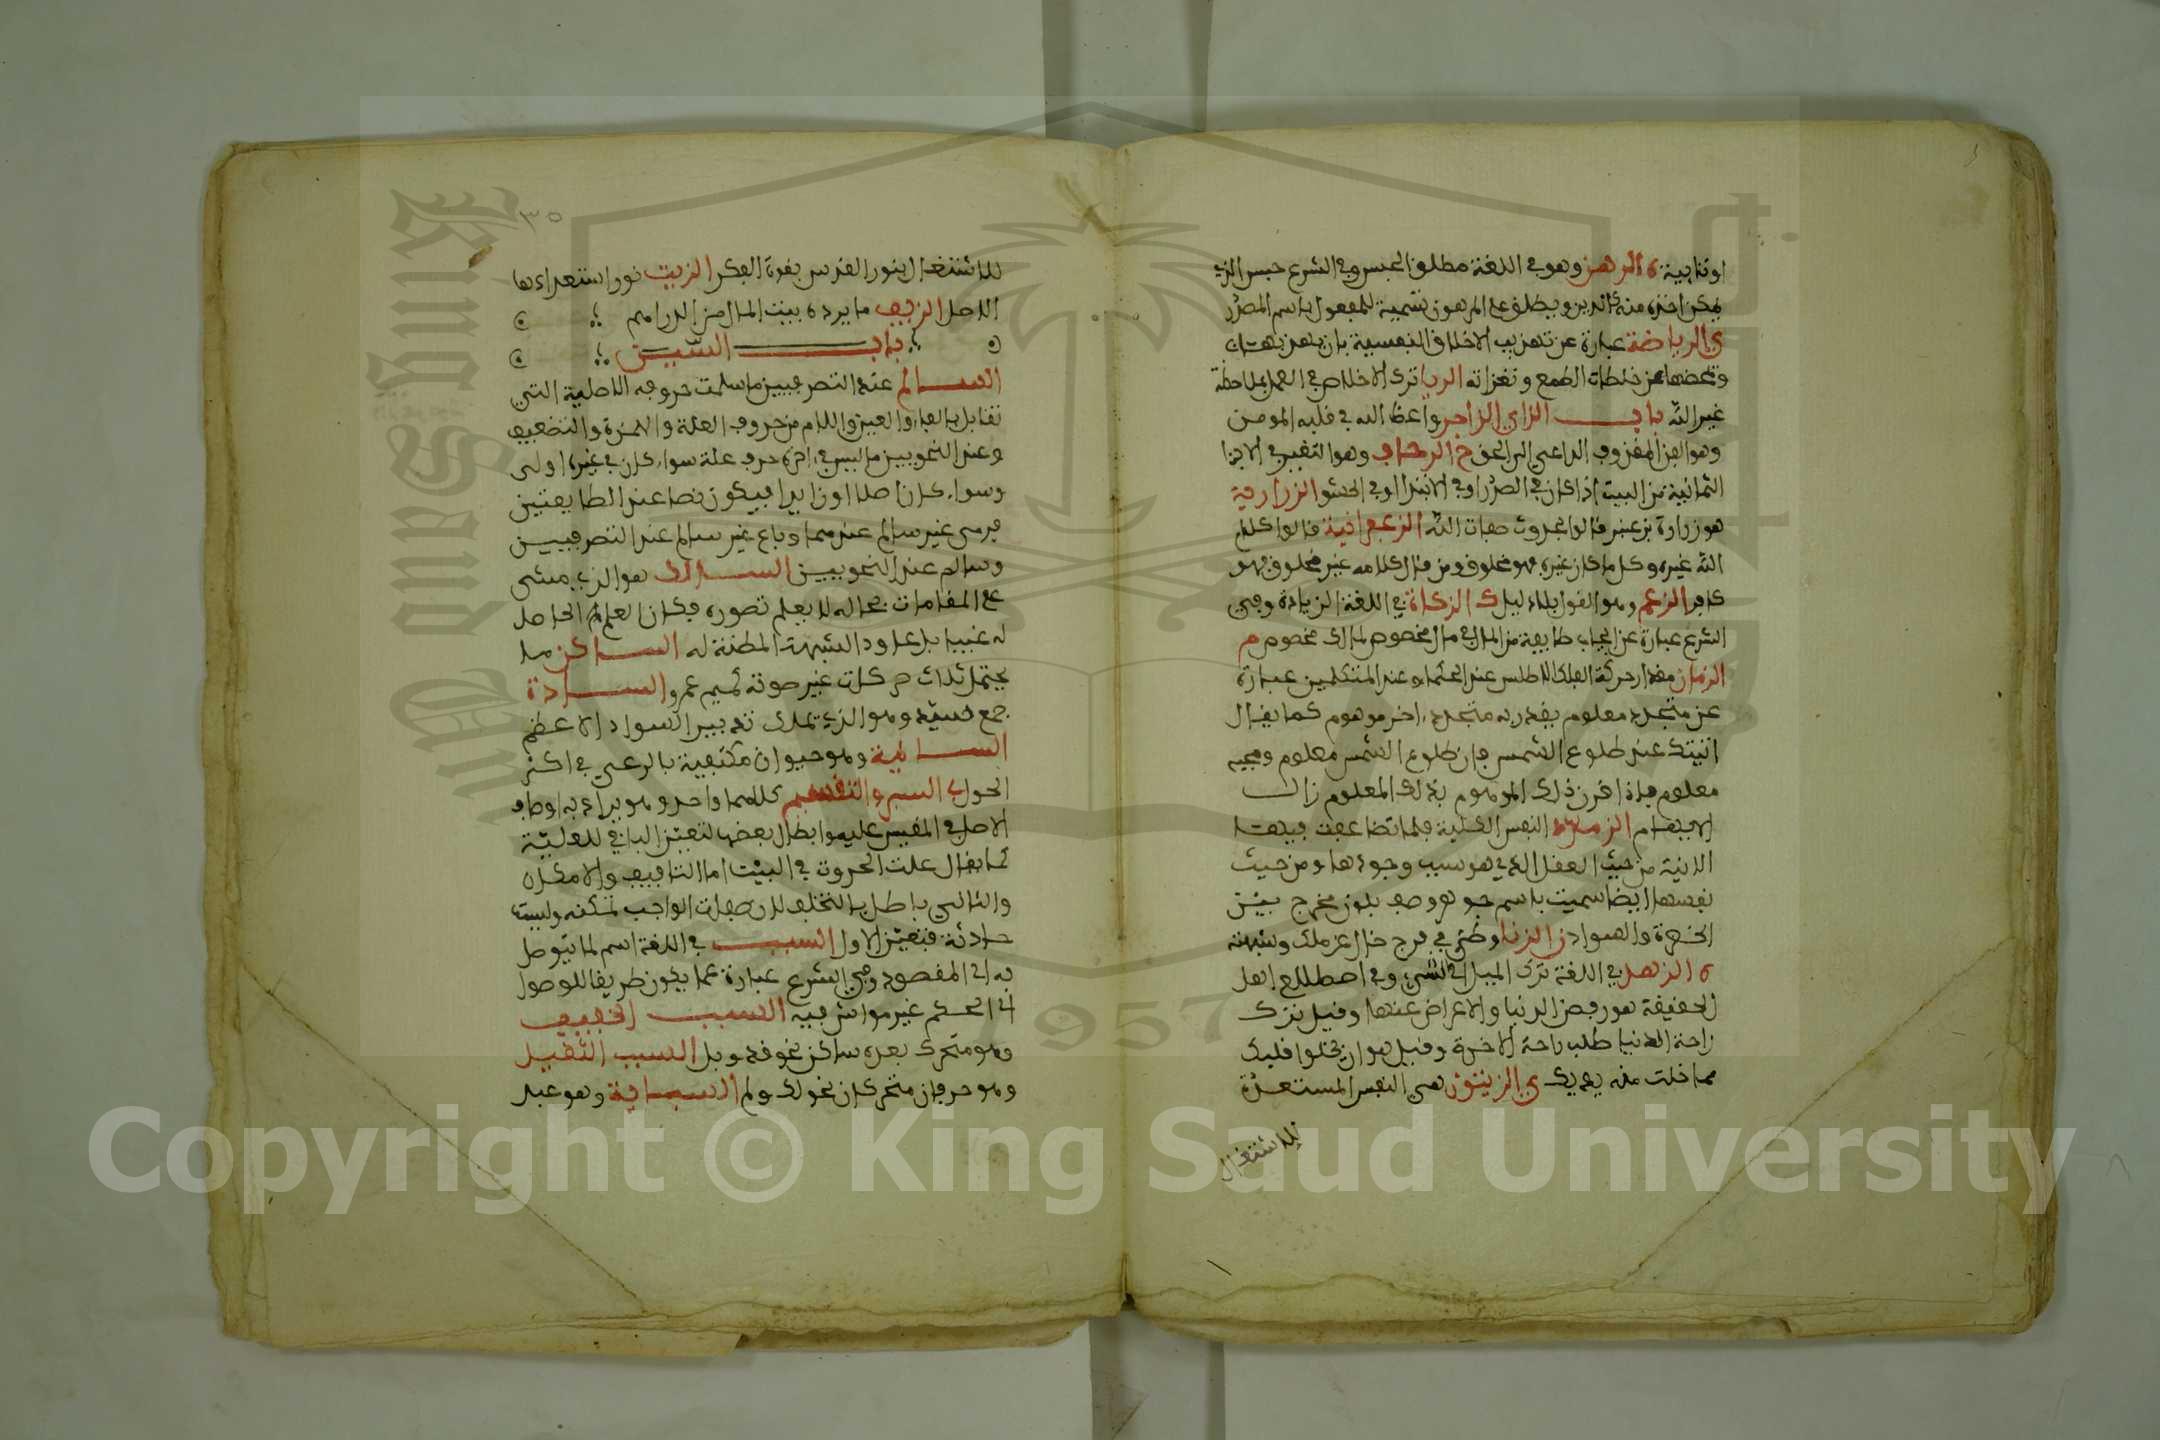 او نابية ه الرهن وهو في اللغة مطلق الحبس وفي الشرع حبس الزي
يمكن اخذه منه كالدين ويطلق على المرهون تسمية للمفعول باسم المصدر
ي الرياضة عبارة عن تهذيب الاخلاق النفسية بان
وتمحضها عن خلطات الطمع ونغزاته الريا ترك الاخلاص في العمل بملاحظة
غير الله باب الزاي الزاجر واعظ الله في قلب المومن
وهو المقذوف الداعي الى الحق خ الزحاف وهو التغيير في الاجزا
الثمانية من البيت اذا كان في الصدر او في الابتدا او في الحشو الزرارية
هو زرارة بن قالوا بحدوث صفات الله الزعفرانية قالوا كلام
الله غيره وكل ما كان غيره فهو مخلوق ومن قال كلامه غير مخلوق فهو
كافر الزعم وهو القول بلا دليل ك الزكاة في اللغة الزيادة وفي
الشرع عبارة عن ايجاب طايفة من المال في مال مخصوص لمالك مخصوص م
الزمان مقدار حركة الفلك الاطلس عند الحكماء وعند المتكلمين عبارة
عن متجدد معلوم يقدر به متجدد اخر موهوم كما يقال
اتيتك عند طلوع الشمس فان طلوع الشمس معلوم ومجيه
معلوم فاذا اقرن ذلك الموهوم بذلك المعلوم زال
الابهام الزمردة النفس الكلية فلما تضاعفت فيها
الانية من حيث العقل الذي هو سبب وجودها ومن حيث
نفسها ايضا سميت باسم جوهر وصف بلون ممزج بين
الخضرة والسواد ن الزنا وطئ في فرج خال عن ملك وشبهته
ه الزهد في اللغة ترك الميل الى الشيء وفي اصطلاح اهل
الحقيقة هو رفض الدنيا والاعراض عنها وقيل ترك
راحة الدنيا طلب راحة الاخرة وقيل هو ان يخلوا قلبك
مما خلت منه يديك ي الزيتون هي النفس المستعدة
للاشتعال
٣٥
للاشتعال بنور القدس بقوة الفكر الزيت نور استعدادها
الاصل الزيف ما يرده بيت المال من الدراهم
باب السين
السالم عند التصرفيين ما سلمت حروفه الاصلية التي
تقابل بالفاء والعين واللام من حروف العلة والهمزة والتضعيف
وعند النحويين ما ليس في اخره حرف علة سواء كان في غيره اولى
وسواء كان اصلا او زايدا فيكون نصا عند الطايفتين
غير سالم عندهما وباع غير سالم عند التصرفيين
وسالم عند النحويين السالك هو الزي مشى
على المقامات بحاله لا بعلم تصوره فكان العلم الحاصل
له عينا الشبهة المضلة له الساكن ما
يحتمل ثلاث حركات غير صوته كميم عمرو السادة
جمع سيد وهو الذي يملك تدبير السواد الاعظم
السايمة وهو حيوان مكتفية بالرعي في اكثر
الحول ب السبر والتقسيم كلاهما واحد وهو يراد به اوصاف
الاصل في المقيس عليه وابطال بعضها لتعين الباقي للعلية
كما يقال علت الحدوث في البيت اما التاليف والامكان
والثاني باطل بالتخلف لان صفات الواجب ممكنه وليست
حادثة فتعين الاول السبب في اللغة اسم لما يتوصل
به الى المقصود وفي الشرع عبارة عما يكون طريقا للوصول
الى الحكم غير مواثر فيه السبب الخفيف
وهو متحرك بعده ساكن نحو قم وبل السبب الثقيل
وهو حرفان متحركان نحو لك ولم السباية وهو عبد